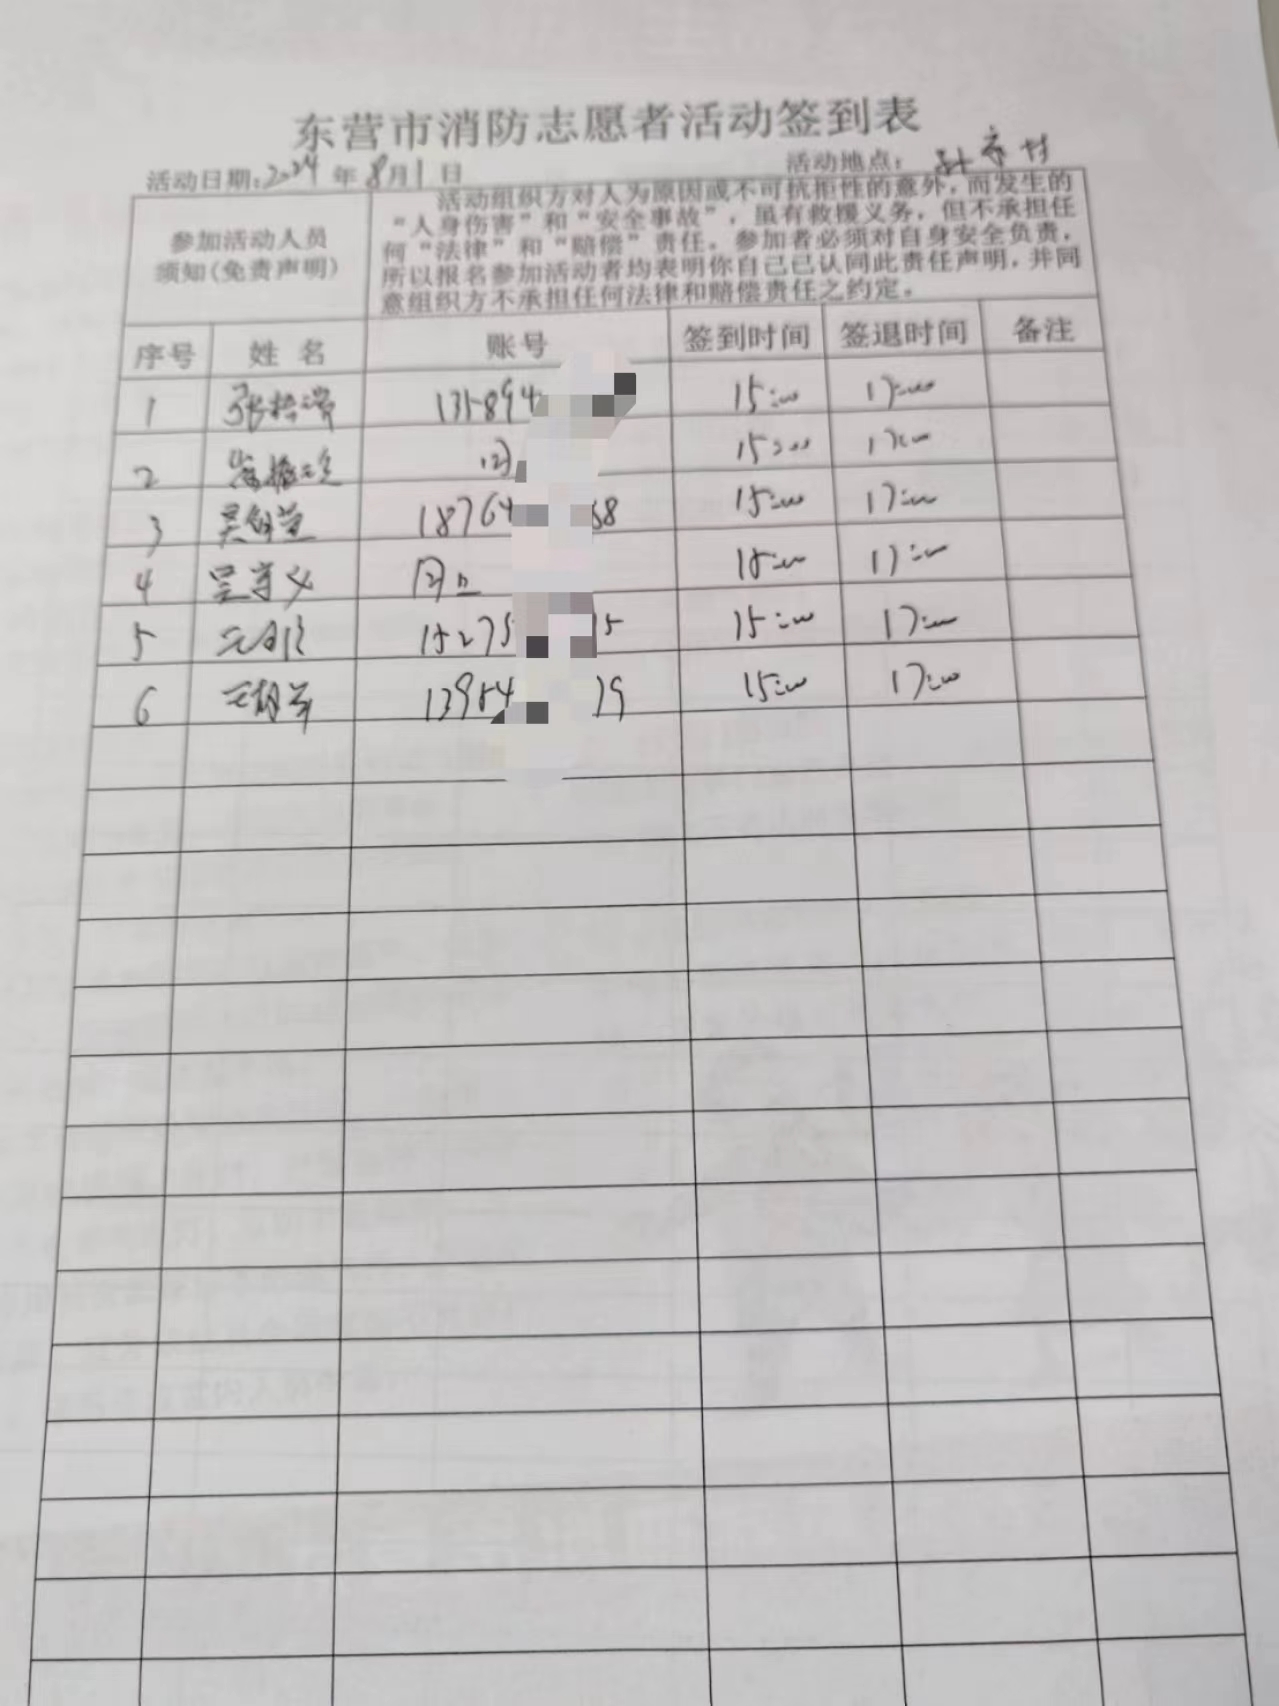 东营市消防志愿者活动签到表
活动日期:2024年8月1日 活动地点:
参加活动人员
须知(免责声明)
活动组织方对人为原因或不可抗拒性的意外,而发生的
“人身伤害”和“安全事故”,虽有救援义务,但不承担任
何“法律”和“赔偿”责任。参加者必须对自身安全负责,
所以报名参加活动者均表明你自己已认同此责任声明,并同
意组织方不承担任何法律和赔偿责任之约定。
序号 姓名 账号 签到时间 签退时间 备注
1 135894 15:00 17:00
2 15:00 17:00
3 18764 68 15:00 17:00
4 吴寺义 15:00 17:00
5 15275 15 15:00 17:00
6 13954 79 15:00 17:00